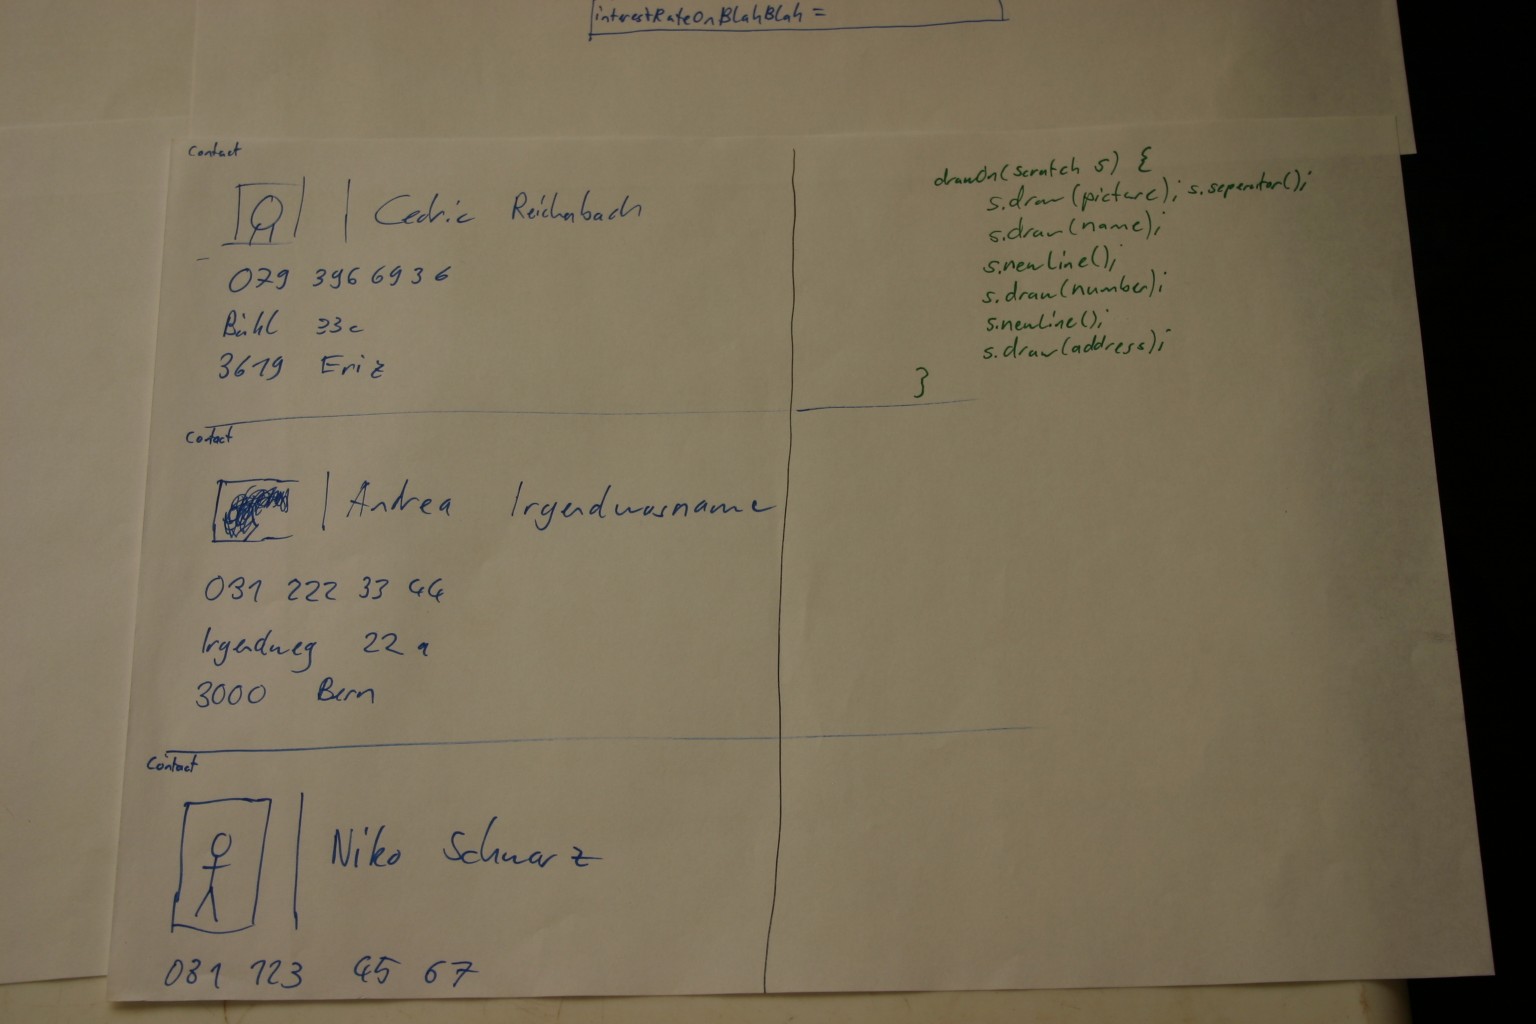 interestRateOnBlahBlah =
Contact
Cedric Reichenbach
079 396 69 36
Bühl 33c
3619 Eriz
Contact
Andrea Irgendwasname
031 222 33 44
Irgendweg 22a
3000 Bern
Contact
Niko Schwarz
031 123 45 67
drawOn(scratch s) {
s.draw(picture); s.seperator();
s.draw(name);
s.newline();
s.draw(number);
s.newline();
s.draw(address);
}